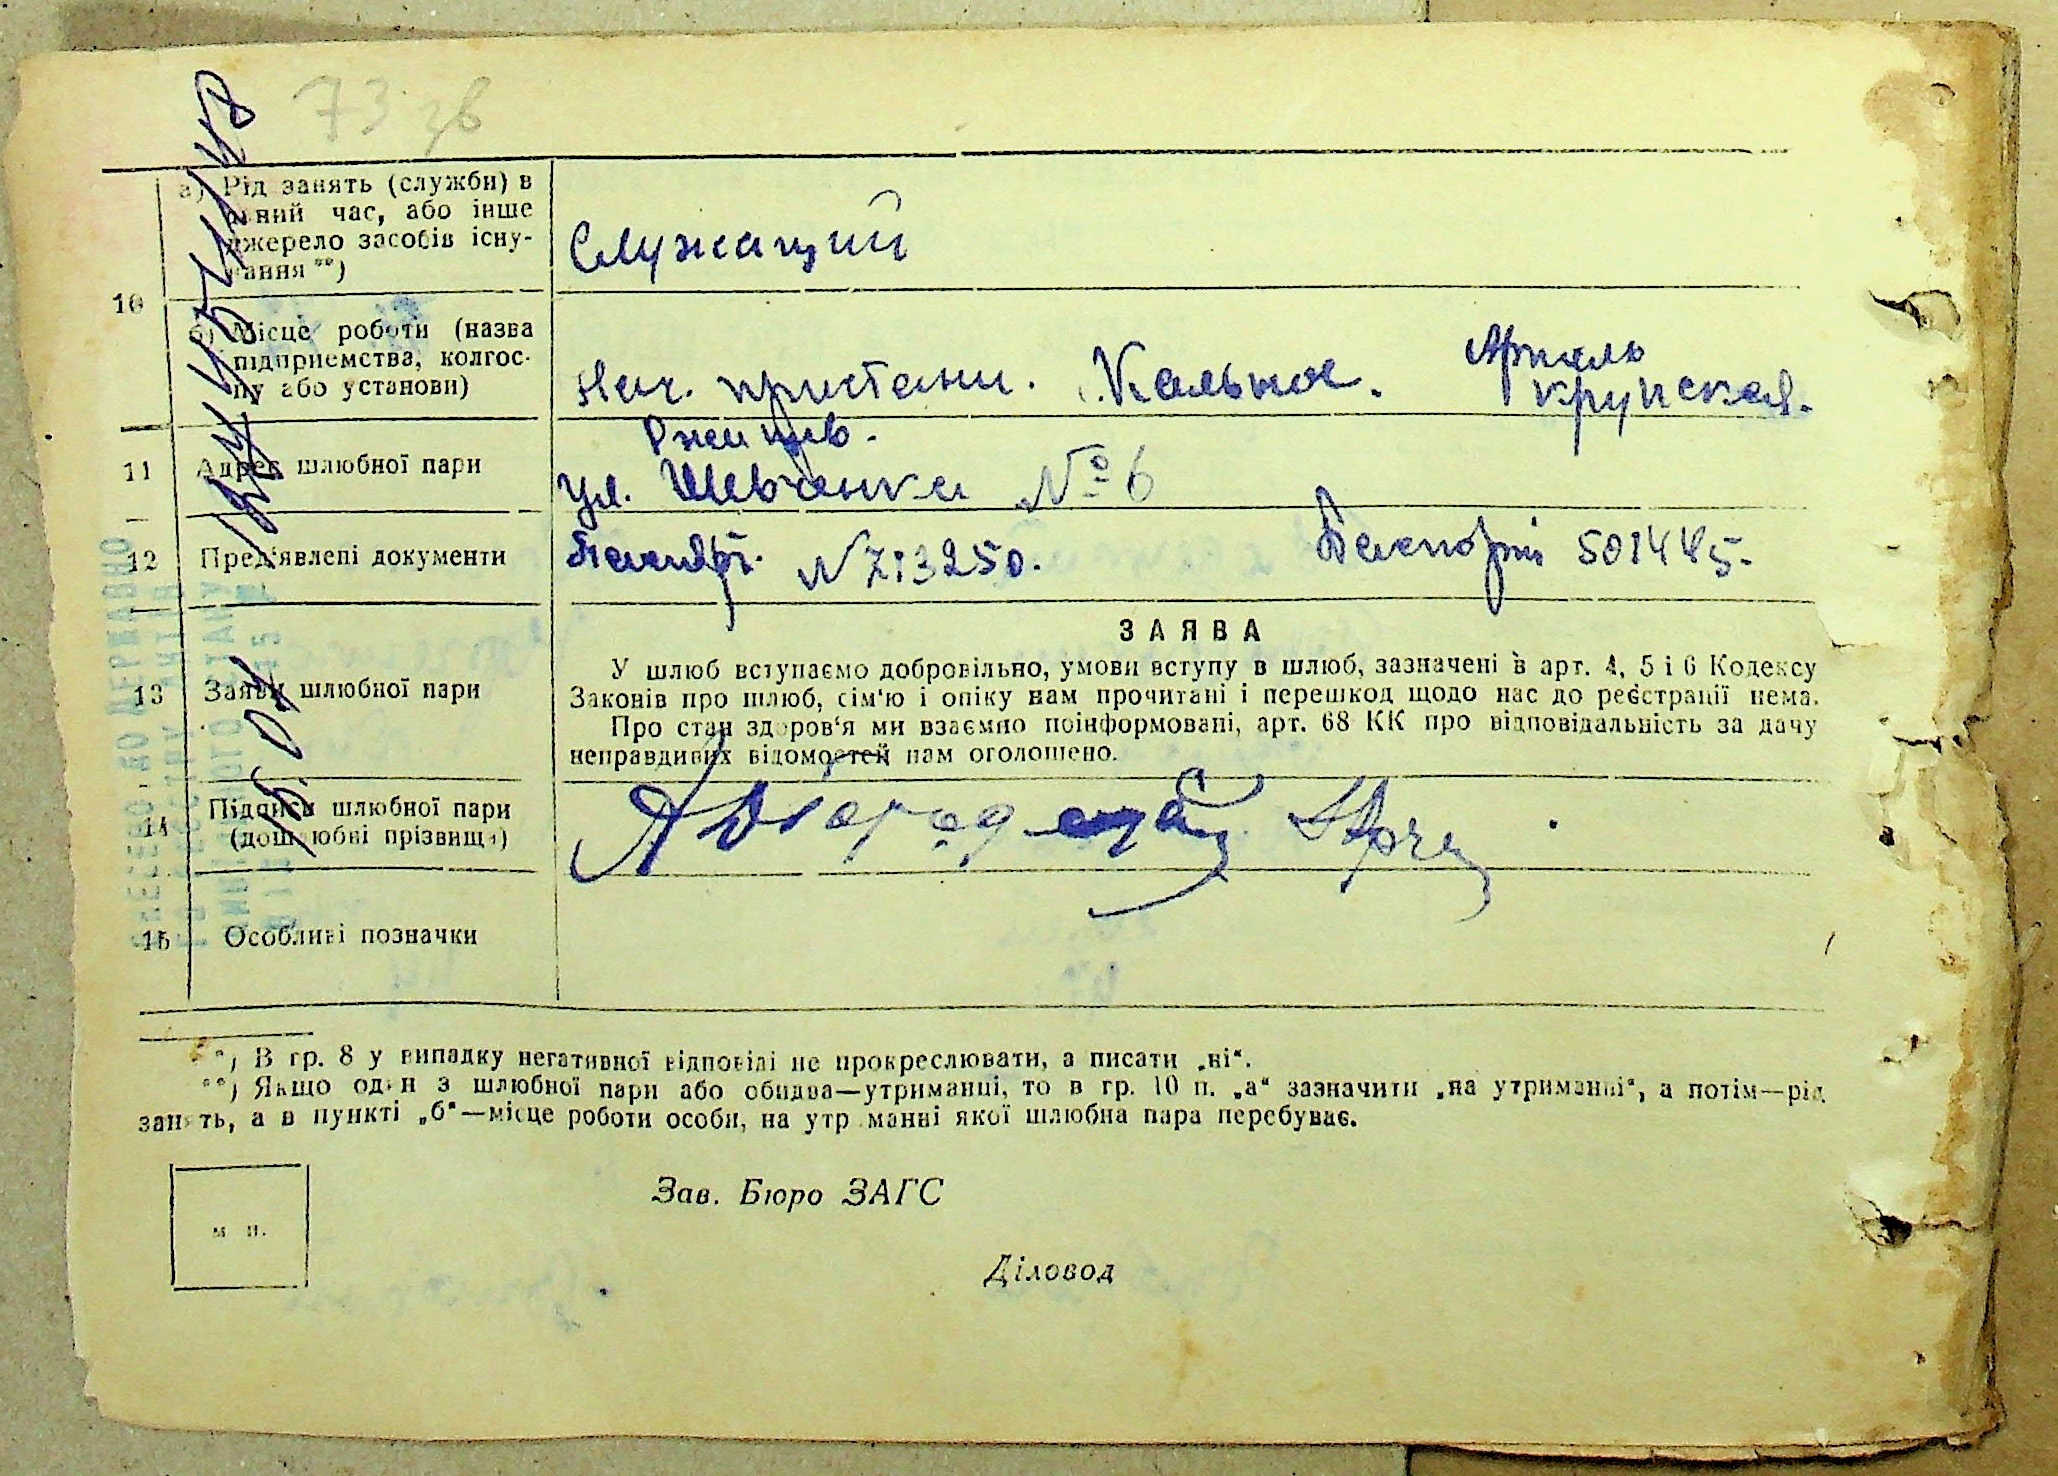 73 зв
а) Рід занять (служби) в
даний час, або інше
джерело засобів існу-
вання **)
Служащий
10
б) Місце роботи (назва
підприємства, колгос-
пу або установи)
Нач. пристани. Кальное. Артель
Крупская.
11 Адрес шлюбної пари
Ржищів.
ул. Шевченка № 6
12 Пред'явлені документи
Паспорт. № 713250. Паспорт 501445.
13 Заяви шлюбної пари
ЗАЯВА
У шлюб вступаємо добровільно, умови вступу в шлюб, зазначені в арт. 4, 5 і 6 Кодексу
Законів про шлюб, сім'ю і опіку нам прочитані і перешкод щодо нас до реєстрації нема.
Про стан здоров'я ми взаємно поінформовані, арт. 68 КК про відповідальність за дачу
неправдивих відомостей нам оголошено.
14 Підписи шлюбної пари
(дошлюбні прізвища)
15 Особливі позначки
*) В гр. 8 у випадку негативної відповіді не прокреслювати, а писати „ні“.
**) Якщо один з шлюбної пари або обидва—утриманці, то в гр. 10 п. „а“ зазначити „на утриманні“, а потім—рід
занять, а в пункті „б“—місце роботи особи, на утриманні якої шлюбна пара перебуває.
м п.
Зав. Бюро ЗАГС
Діловод